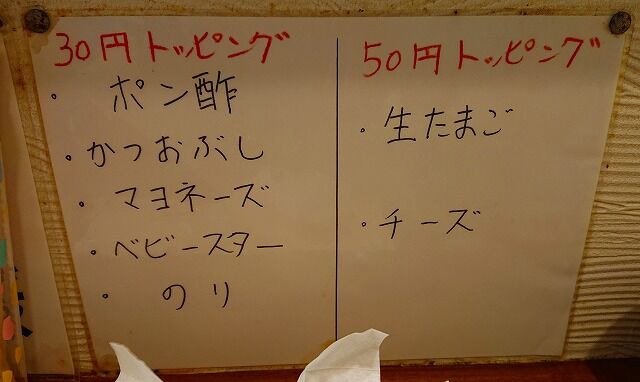 30円トッピング
・ポン酢
・かつおぶし
・マヨネーズ
・ベビースター
・のり
50円トッピング
・生たまご
・チーズ